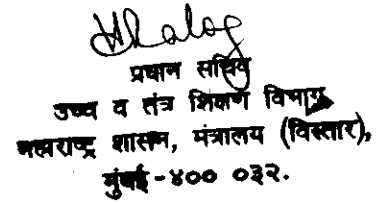 प्रधान सचिव
उच्च व तंत्र शिक्षण विभाग,
महाराष्ट्र शासन, मंत्रालय (विस्तार),
मुंबई-४०० ०३२.